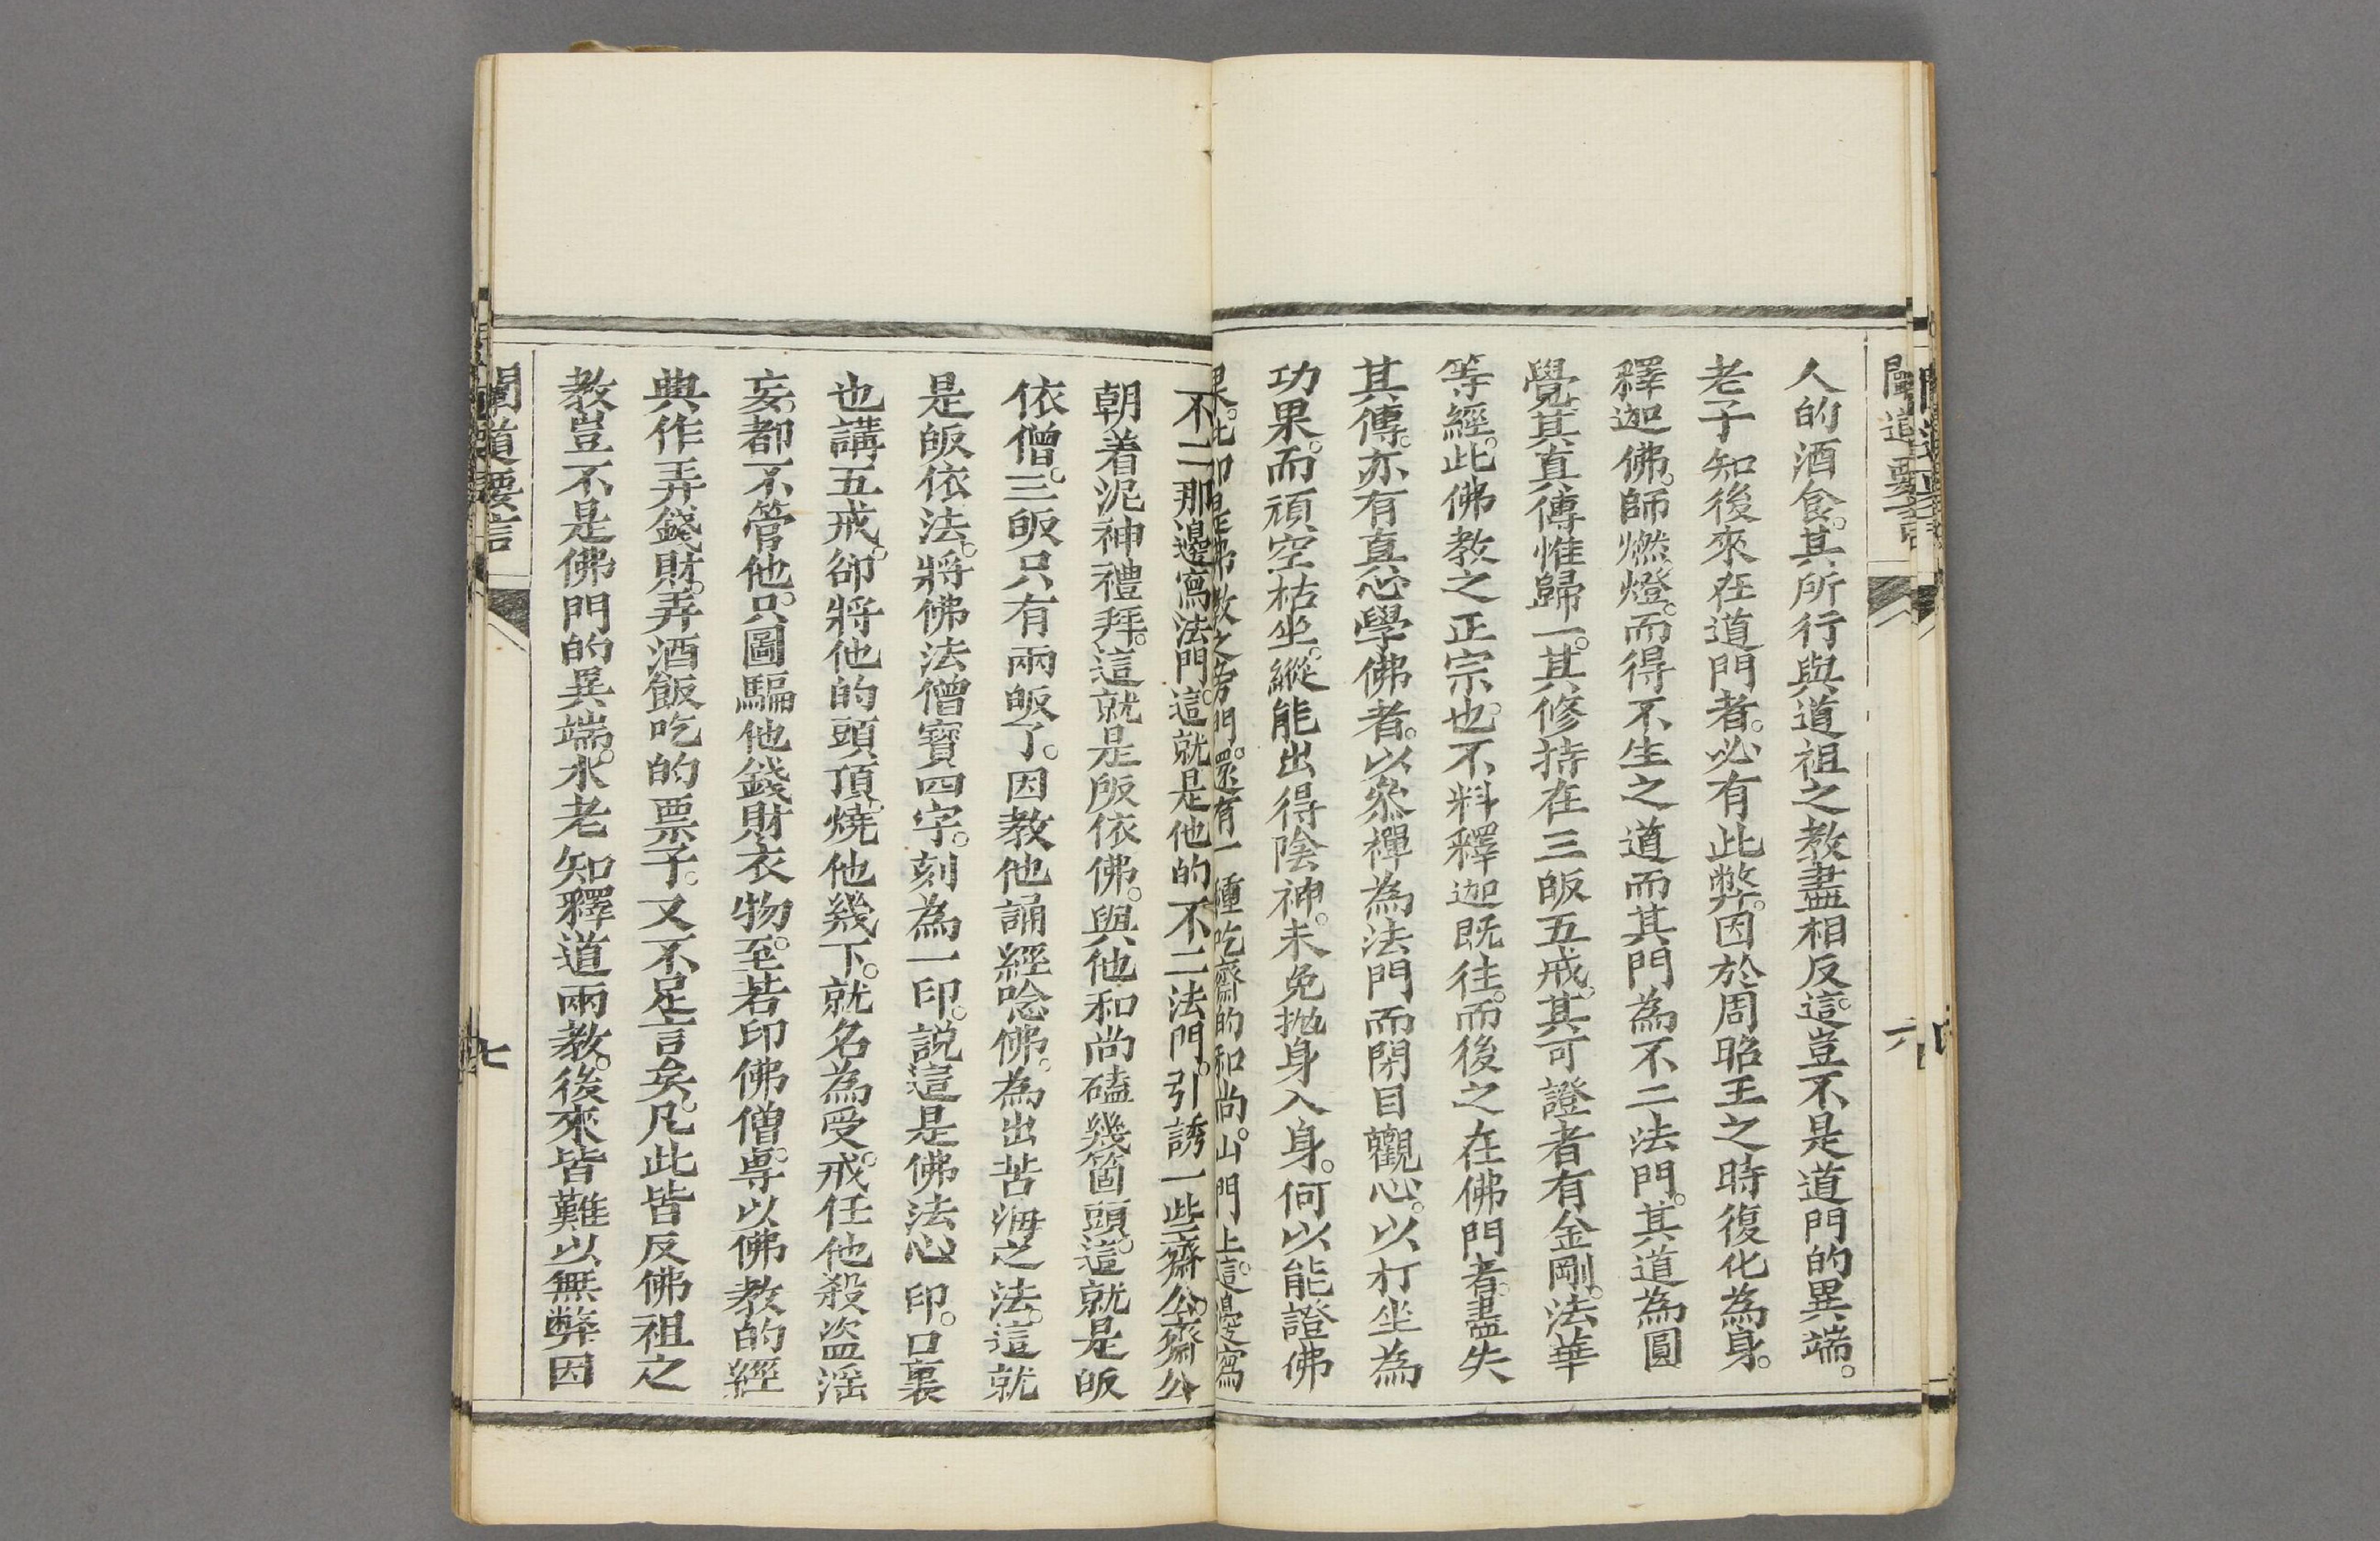 闡道要言
六
人的酒食。其所行與道祖之教盡相反。這豈不是道門的異端。
老子知後來在道門者。必有此弊。因於周昭王之時復化為身。
釋迦佛。師燃燈。而得不生之道而其門為不二法門。其道為圓
覺其真傳惟歸一。其修持在三皈五戒。其可證者有金剛。法華
等經。此佛教之正宗也。不料釋迦既往。而後之在佛門者。盡失
其傳。亦有真心學佛者。以叅禪為法門而閉目觀心。以打坐為
功果。而頑空枯坐。縱能出得陰神。未免抛身入身。何以能證佛
果。此即是佛教之旁門。還有一種吃齋的和尚。山門上。這邊寫
不二那邊寫法門。這就是他的不二法門。引誘一些齋公。齋公
朝着泥神禮拜。這就是皈依佛。與他和尚磕幾箇頭。這就是皈
依僧。三皈只有兩皈了。因教他誦經唸佛。為出苦海之法。這就
是皈依法。將佛法僧寶四字。刻為一印。説這是佛法心印。口裏
也講五戒。卻將他的頭頂。燒他幾下。就名為受戒。任他殺盜淫
妄。都不管他。只圖騙他錢財衣物。至若印佛僧。専以佛教的經
典作弄錢財。弄酒飯吃的票子。又不足言矣。凡此皆反佛祖之
教豈不是佛門的異端。水老知釋道兩教。後來皆難以無弊因
闡道要言
七